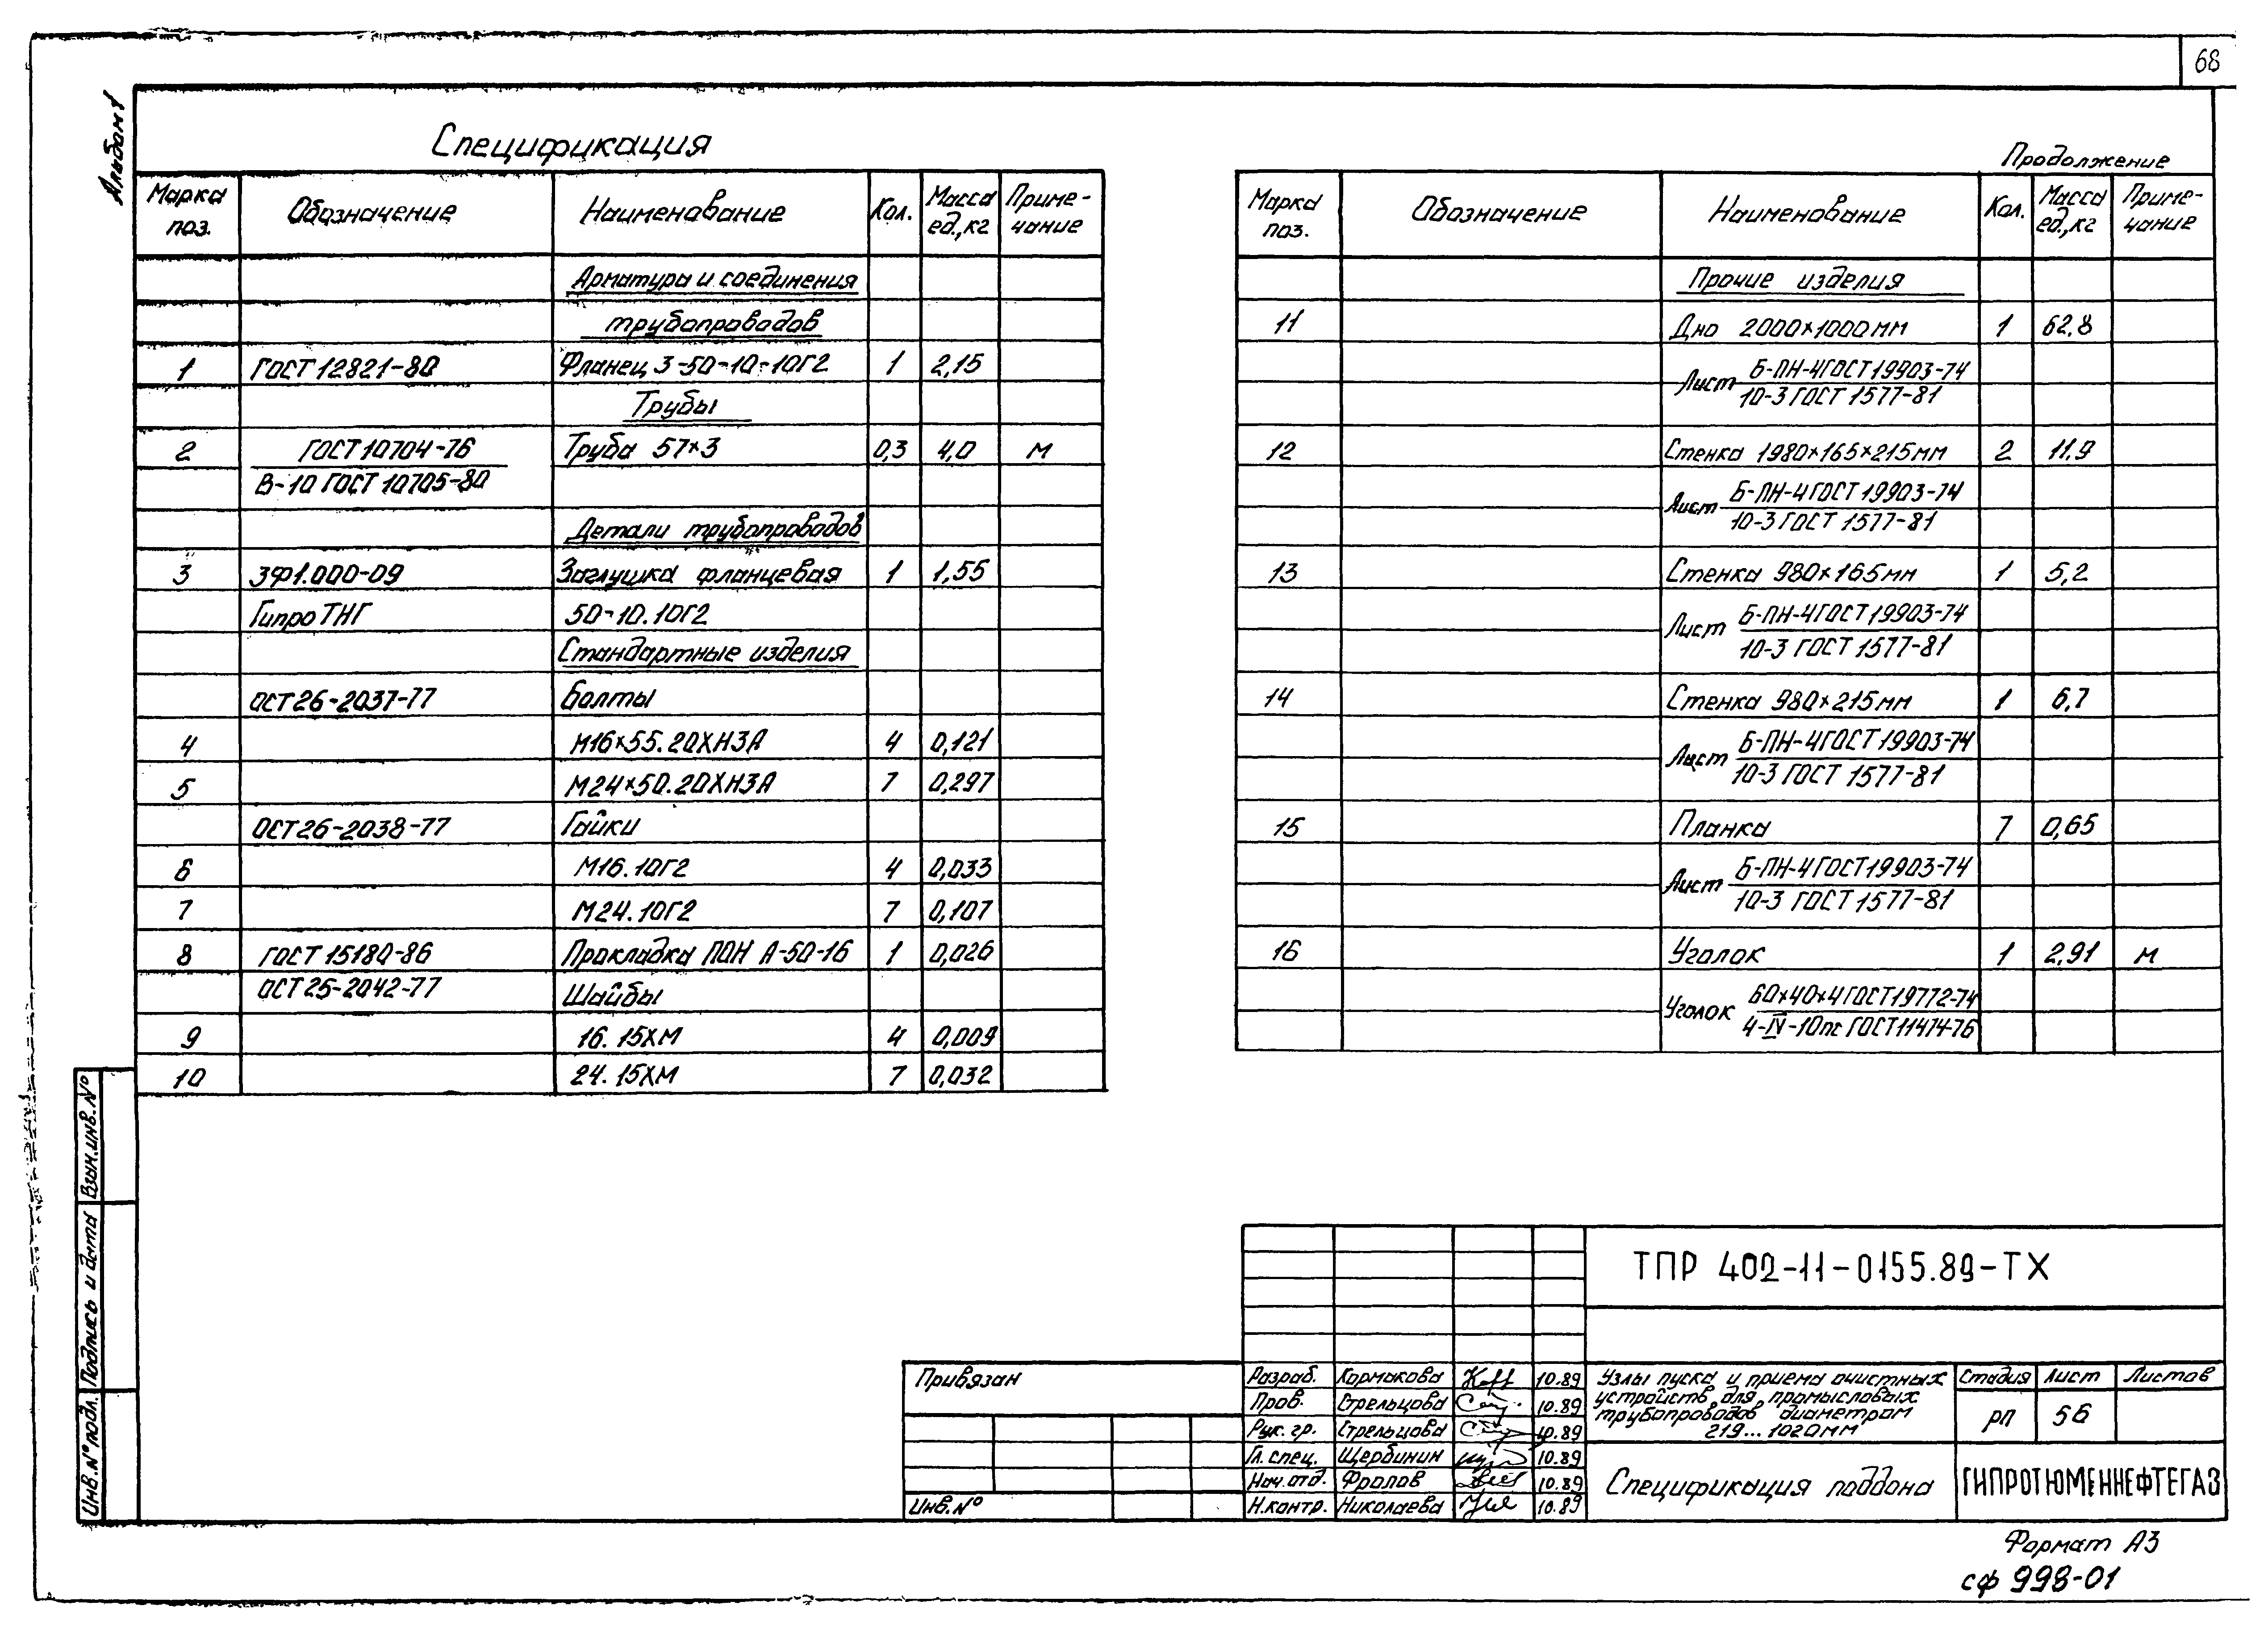 68
Альбом 1
Спецификация
Марка поз. Обозначение Наименование Кол. Масса ед.,кг Приме-чание
Арматура и соединения
трубопроводов
1 ГОСТ 12821-80 Фланец 3-50-10-10Г2 1 2,15
Трубы
2 ГОСТ 10704-76 Труба 57×3 0,3 4,0 м
В-10 ГОСТ 10705-80
Детали трубопроводов
3 ЗФ1.000-09 Заглушка фланцевая 1 1,55
ГипроТНГ 50-10.10Г2
Стандартные изделия
ОСТ 26-2037-77 Болты
4 М16×55.20ХН3А 4 0,121
5 М24×50.20ХН3А 7 0,297
ОСТ 26-2038-77 Гайки
6 М16.10Г2 4 0,033
7 М24.10Г2 7 0,107
8 ГОСТ 15180-86 Прокладка ПОН А-50-16 1 0,026
ОСТ 25-2042-77 Шайбы
9 16.15ХМ 4 0,009
10 24.15ХМ 7 0,032
Продолжение
Марка поз. Обозначение Наименование Кол. Масса ед.,кг Приме-чание
Прочие изделия
11 Дно 2000×1000мм 1 62,8
Лист Б-ПН-4 ГОСТ 19903-74
10-3 ГОСТ 1577-81
12 Стенка 1980×165×215мм 2 11,9
Лист Б-ПН-4 ГОСТ 19903-74
10-3 ГОСТ 1577-81
13 Стенка 980×165мм 1 5,2
Лист Б-ПН-4 ГОСТ 19903-74
10-3 ГОСТ 1577-81
14 Стенка 980×215мм 1 6,7
Лист Б-ПН-4 ГОСТ 19903-74
10-3 ГОСТ 1577-81
15 Планка 7 0,65
Лист Б-ПН-4 ГОСТ 19903-74
10-3 ГОСТ 1577-81
16 Уголок 1 2,91 м
Уголок 60×40×4 ГОСТ 19772-74
4-IV-10пс ГОСТ 11474-76
Взам.инв.№
Подпись и дата
Инв.№ подл.
ТПР 402-11-0155.89-ТХ
Привязан
Инв.№
Разраб. Кормакова 10.89
Пров. Стрельцова 10.89
Рук. гр. Стрельцова 10.89
Гл. спец. Щербинин 10.89
Нач. отд. Фролов 10.89
Н.контр. Николаева 10.89
Узлы пуска и приема очистных
устройств для промысловых
трубопроводов диаметром
219...1020мм
Стадия Лист Листов
РП 56
Спецификация поддона
ГИПРОТЮМЕННЕФТЕГАЗ
Формат А3
сф 998-01